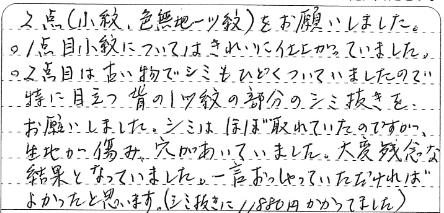 2点(小紋、色無地一ツ紋)をお願いしました。
○1点目小紋についてはきれいに仕上がっていました。
○2点目は古い物でシミもひどくついていましたので
特に目立つ背の1ツ紋の部分のシミ抜きを
お願いしました。シミはほぼ取れていたのですが、
生地が傷み、穴があいていました。大変残念な
結果となっていました。一言おっしゃっていただければ
よかったと思います。(シミ抜きに11,880円かかってました)